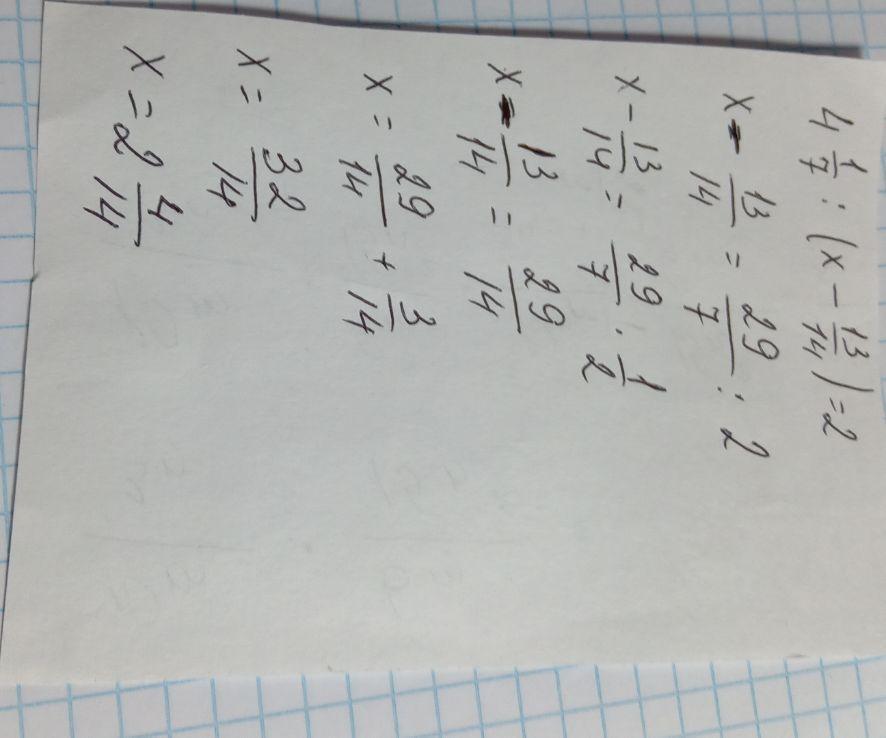 4 1/7 : (x - 13/14) = 2
x - 13/14 = 29/7 : 2
x - 13/14 = 29/7 · 1/2
x - 13/14 = 29/14
x = 29/14 + 3/14
x = 32/14
x = 2 4/14